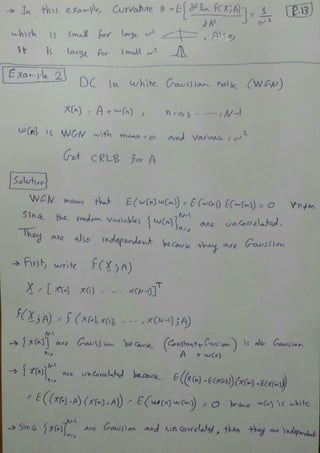 → In this example, Curvature θ = -E[∂² ln f(x;A) / ∂A²] = 1/σ²
P.13
which is small for large σ²
It is large for small σ²
Example 2 DC in white Gaussian noise (WGN)
x[n] = A + w[n] , n=0, - - - -, N-1
w[n] is WGN with mean=0 and variance=σ²
Get CRLB for A
Solution
WGN means that E(w[n]w[m]) = E(w[n]) E(w[m]) = 0 ∀n≠m
Since the random variables {w[n]}ₙ₌₀ᴺ⁻¹ are uncorrelated.
They are also independent because they are Gaussian
→ First, write f(X;A)
X = [x[0] x[1] - - - x[N-1]]ᵀ
f(X;A) = f(x[0], x[1], - - - , x[N-1];A)
→ {x[n]}ₙ₌₀ᴺ⁻¹ are Gaussian because (Constant+Gaussian) is also Gaussian
A + w[n]
→ {x[n]}ₙ₌₀ᴺ⁻¹ are uncorrelated because E((x[n]-E(x[n]))(x[m]-E(x[m]))
= E((x[n]-A)(x[m]-A)) = E(w[n]w[m]) = 0 because w[n] is white
→ Since {x[n]}ₙ₌₀ᴺ⁻¹ are Gaussian and uncorrelated, then they are independent